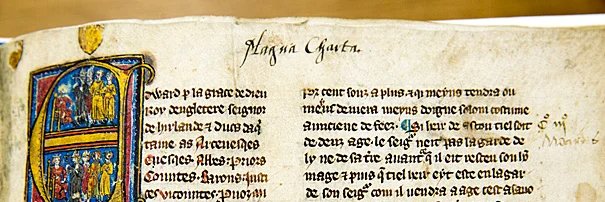 Magna Charta.
dward p la grace de dieu
Roy dengletere seignor
de hirlande & ducs daq
taine as Arcevesqes
Evesqes. Abbes. Priors
Countes. Barons. Justi
ces viscontes. Provorz
por cent souz a plus. & qi meyns tendra ou
devera meyns doigne solom custume
aunciene de feez. Si heir de ascun tiel soit
de deinz age. le seigr neit pas la garde de
ly ne de sa tre avant qe il eit resceu son ho
mage & puis qe tiel heir eyt este en la gar
de son seigr com il vendra a age cest a savo